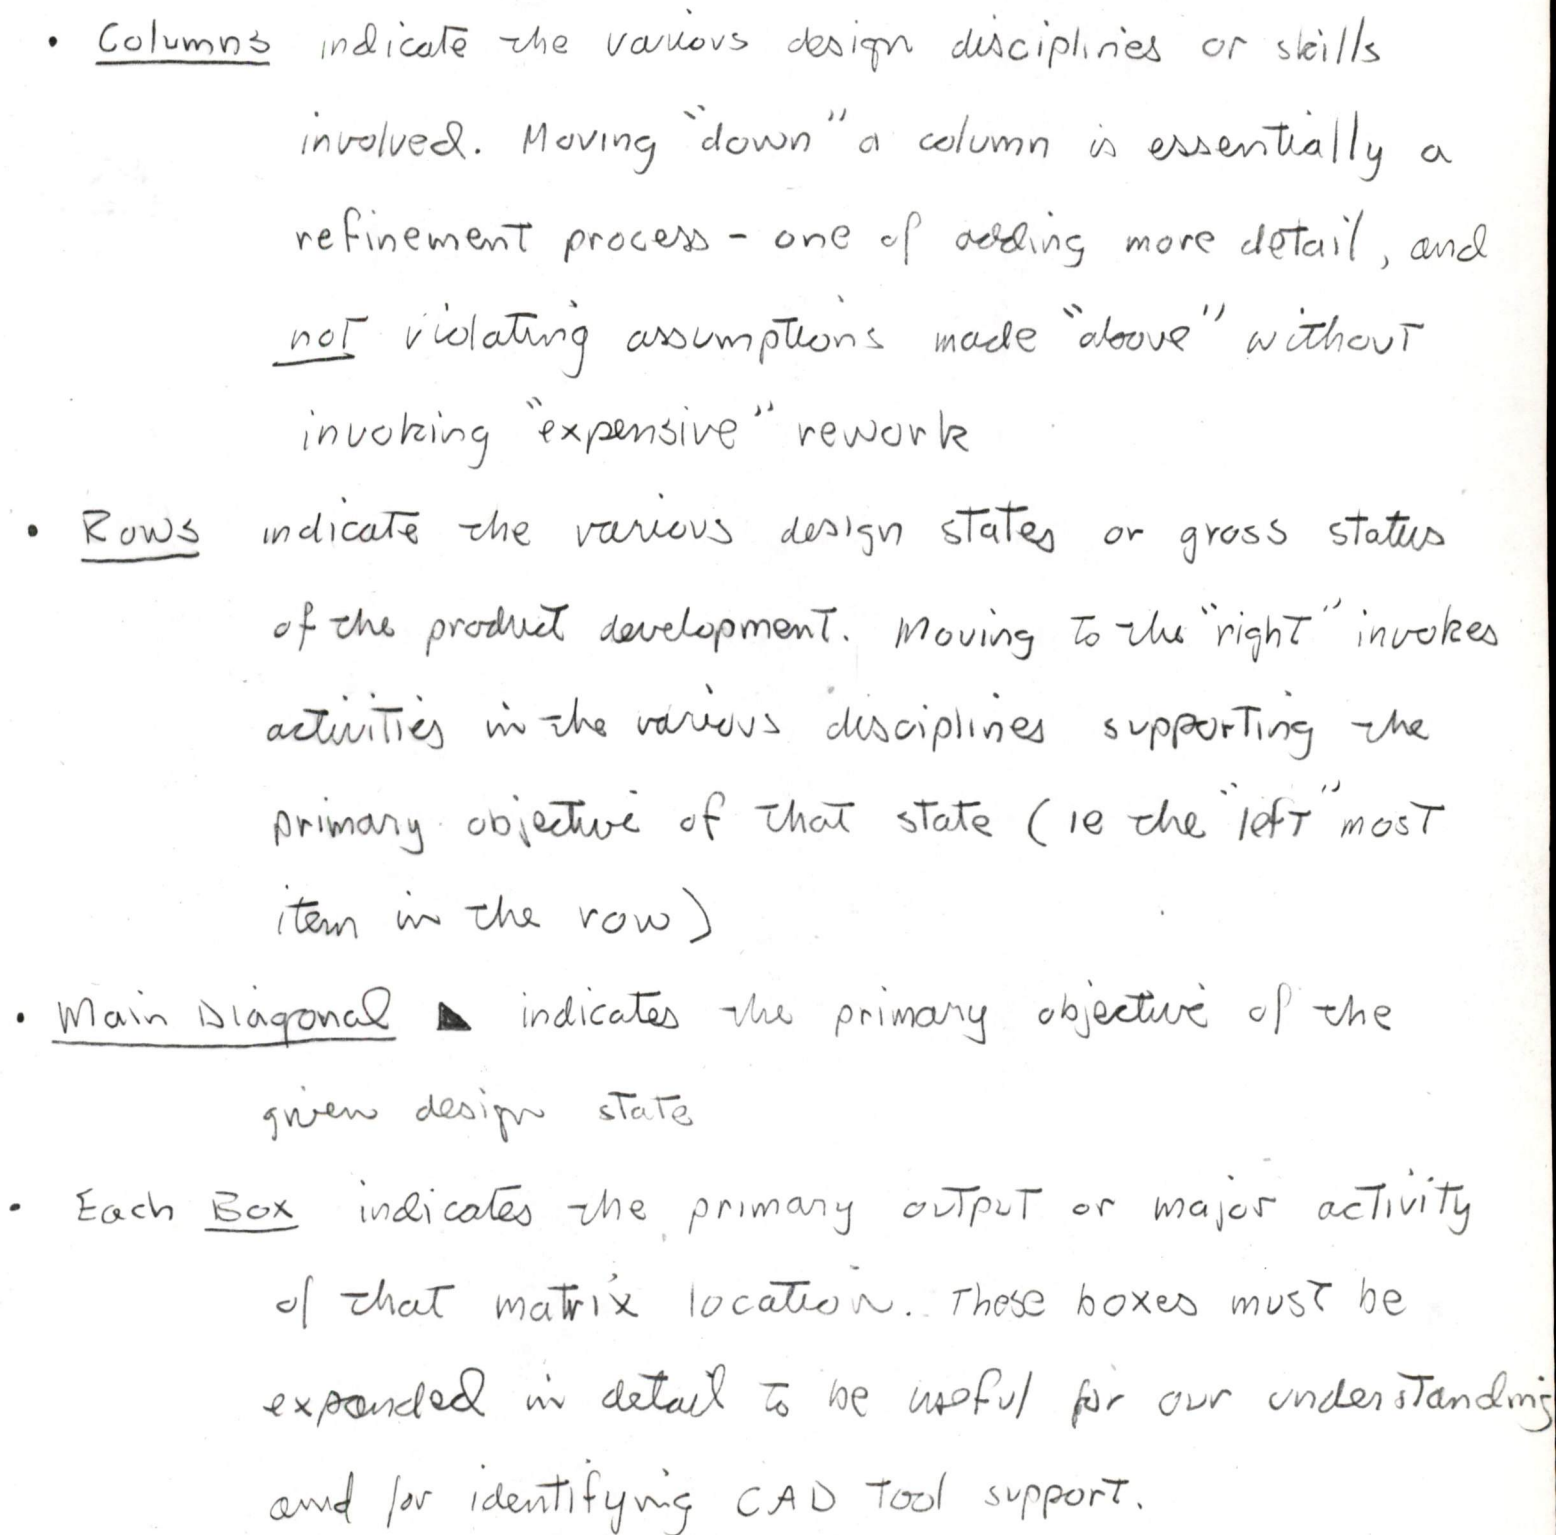 • Columns indicate the various design disciplines or skills
involved. Moving "down" a column is essentially a
refinement process - one of adding more detail, and
not violating assumptions made "above" without
invoking "expensive" rework
• Rows indicate the various design states or gross status
of the product development. Moving to the "right" invokes
activities in the various disciplines supporting the
primary objective of that state (ie the "left" most
item in the row)
• Main Diagonal ◣ indicates the primary objective of the
given design state
• Each Box indicates the primary output or major activity
of that matrix location. These boxes must be
expanded in detail to be useful for our understanding
and for identifying CAD tool support.